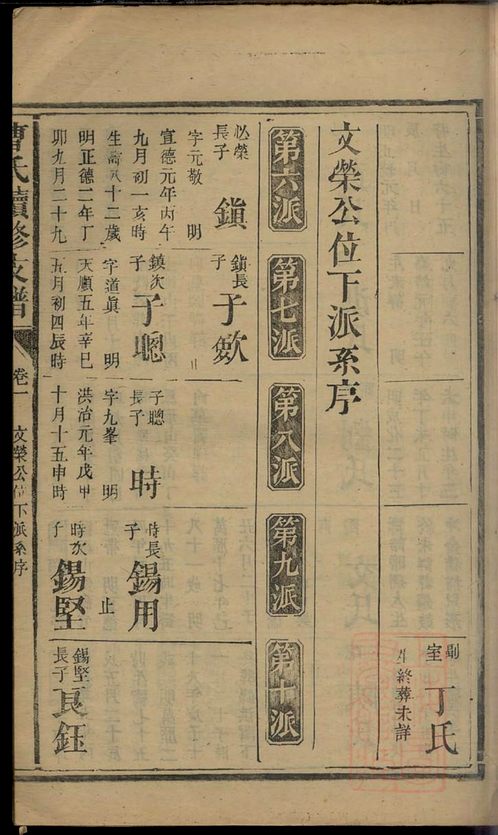 副室 丁氏
生終葬未詳
文榮公位下派系序
第六派
第七派
第八派
第九派
第十派
必榮長子 鎮
字元敬 明
宣德元年丙午
九月初一亥時
生壽八十二歲
明正德二年丁
卯九月二十九
鎮長子 于歛
止
鎮次子 于聰
字道眞 明
天順五年辛巳
五月初四辰時
于聰長子 時
字九峯 明
洪治元年戊甲
十月十五申時
時長子 錫用
止
時次子 錫堅
錫堅長子 良鈺
曹氏續修支譜 卷一 文榮公位下派系序